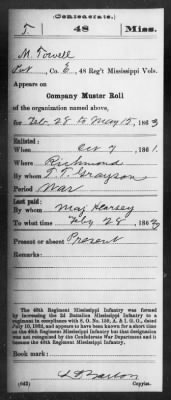 (Confederate.)
T 48 Miss.
M. Towell
Pvt, Co. E, 48 Reg't Mississippi Vols.
Appears on
Company Muster Roll
of the organization named above,
for Feb. 28 to May 15, 1863
Enlisted:
When Oct 7, 1861.
Where Richmond
By whom T. T. Grayson
Period War
Last paid:
By whom Maj Hearsey
To what time Feby 28, 186
Present or absent Present
Remarks:
The 48th Regiment Mississippi Infantry was formed
by increasing the 2d Battalion Mississippi Infantry to a
regiment in compliance with S. O. No.
and appears to have been known for a short time
as the 49th Regiment Mississippi Infantry but that designation
was not recognized by the Confederate War Department and it
became the 48th Regiment Mississippi Infantry.
Book mark:
(642) Barton
Copyist.